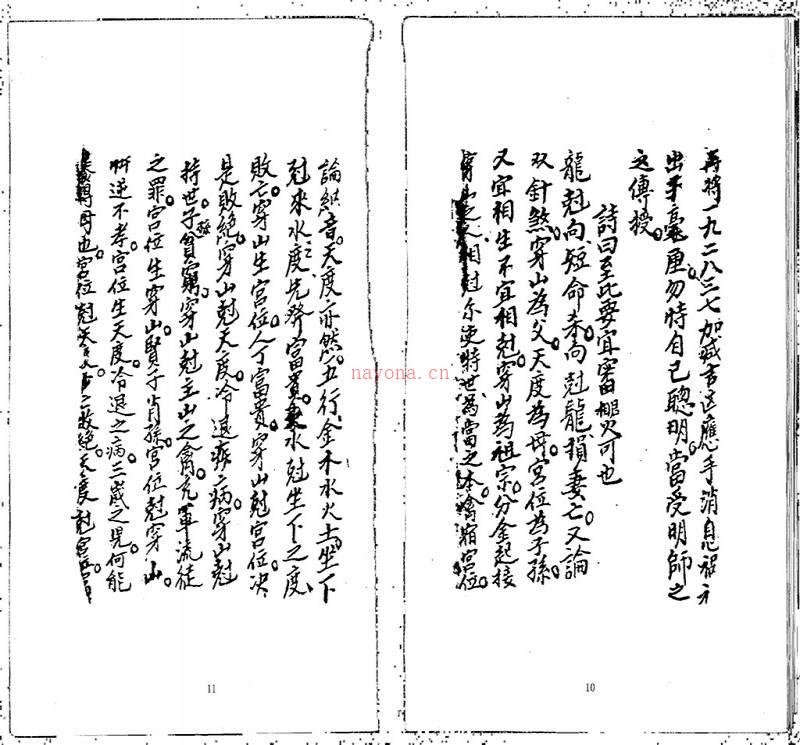 再將一九二八三七加減吉凶應手消息禍福
出手毫厘勿恃自己聰明當受明師之
之傳授
詩曰至此要宜審

龍尅向短命來向尅龍損妻亡又論
双針煞穿山為父天度為母宮位為子孫
又宜相生不宜相尅穿山為祖宗分金起接
相尅
論納音天度亦然五行金木水火土坐下
尅來水度先發富貴水尅坐下之度
敗亡穿山生宮位人丁富貴穿山尅宮位決
是敗絕穿山尅天度冷退疾病穿山尅
持世子孫貧窮穿山尅主山之禽充軍流徒
之罪宮位生穿山賢子肖孫宮位尅穿山
忤逆不孝宮位生天度冷退之病三歲之児何能
得母也宮位尅天敗絕天度尅宮位
nayona.cn
11
10